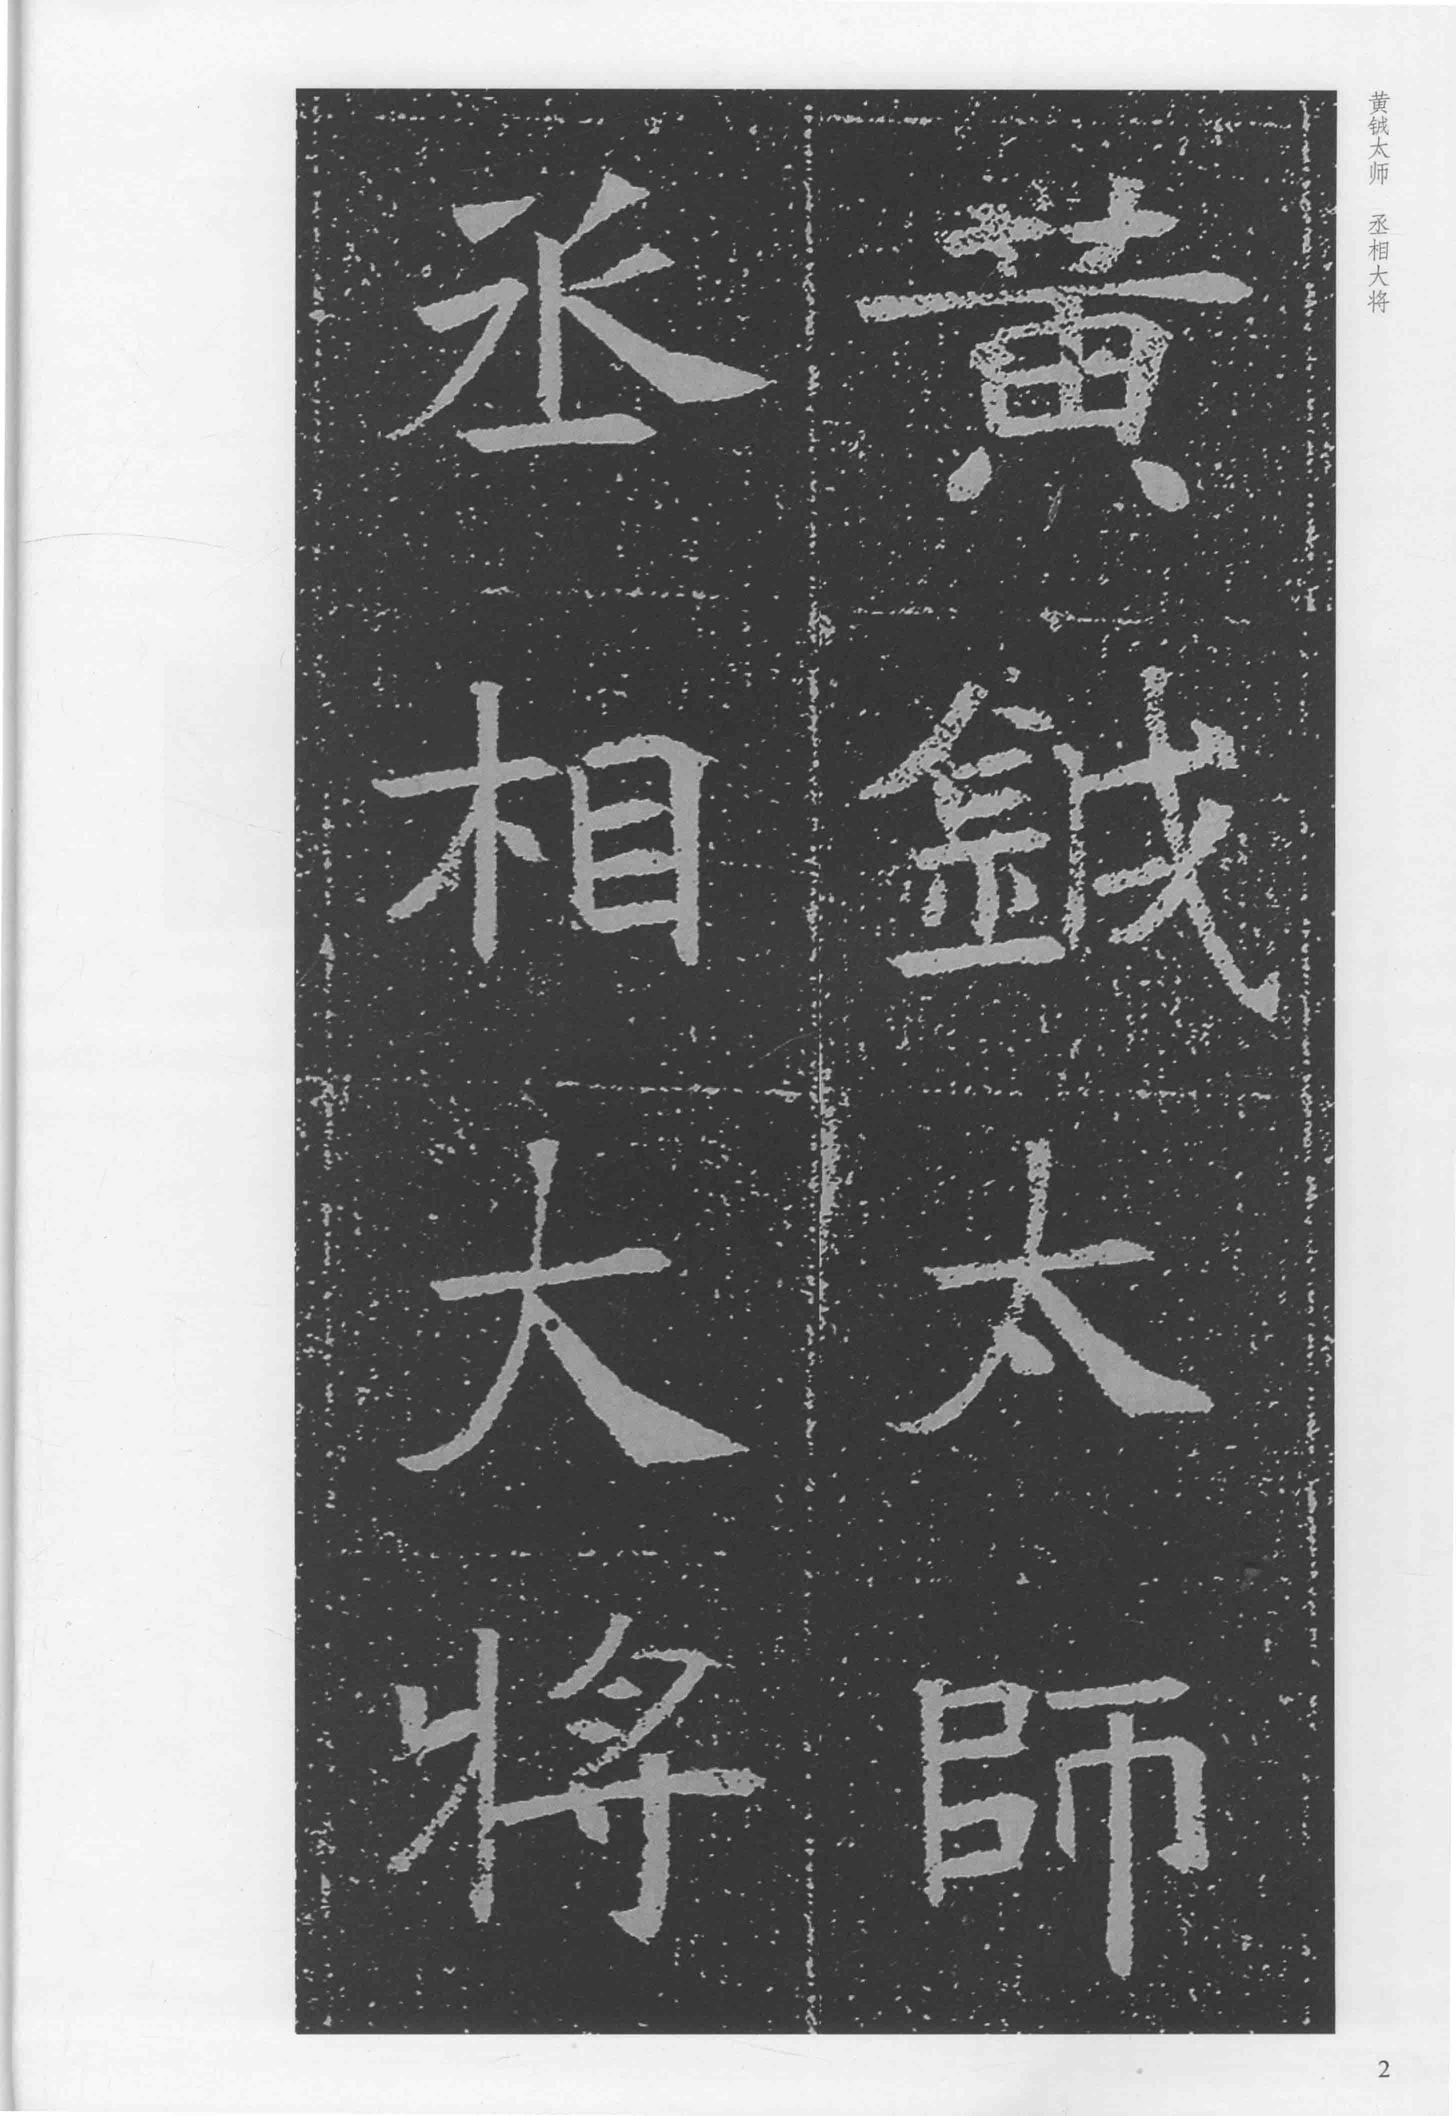 黄钺太师　丞相大将
黄鉞太師
丞相大將
2